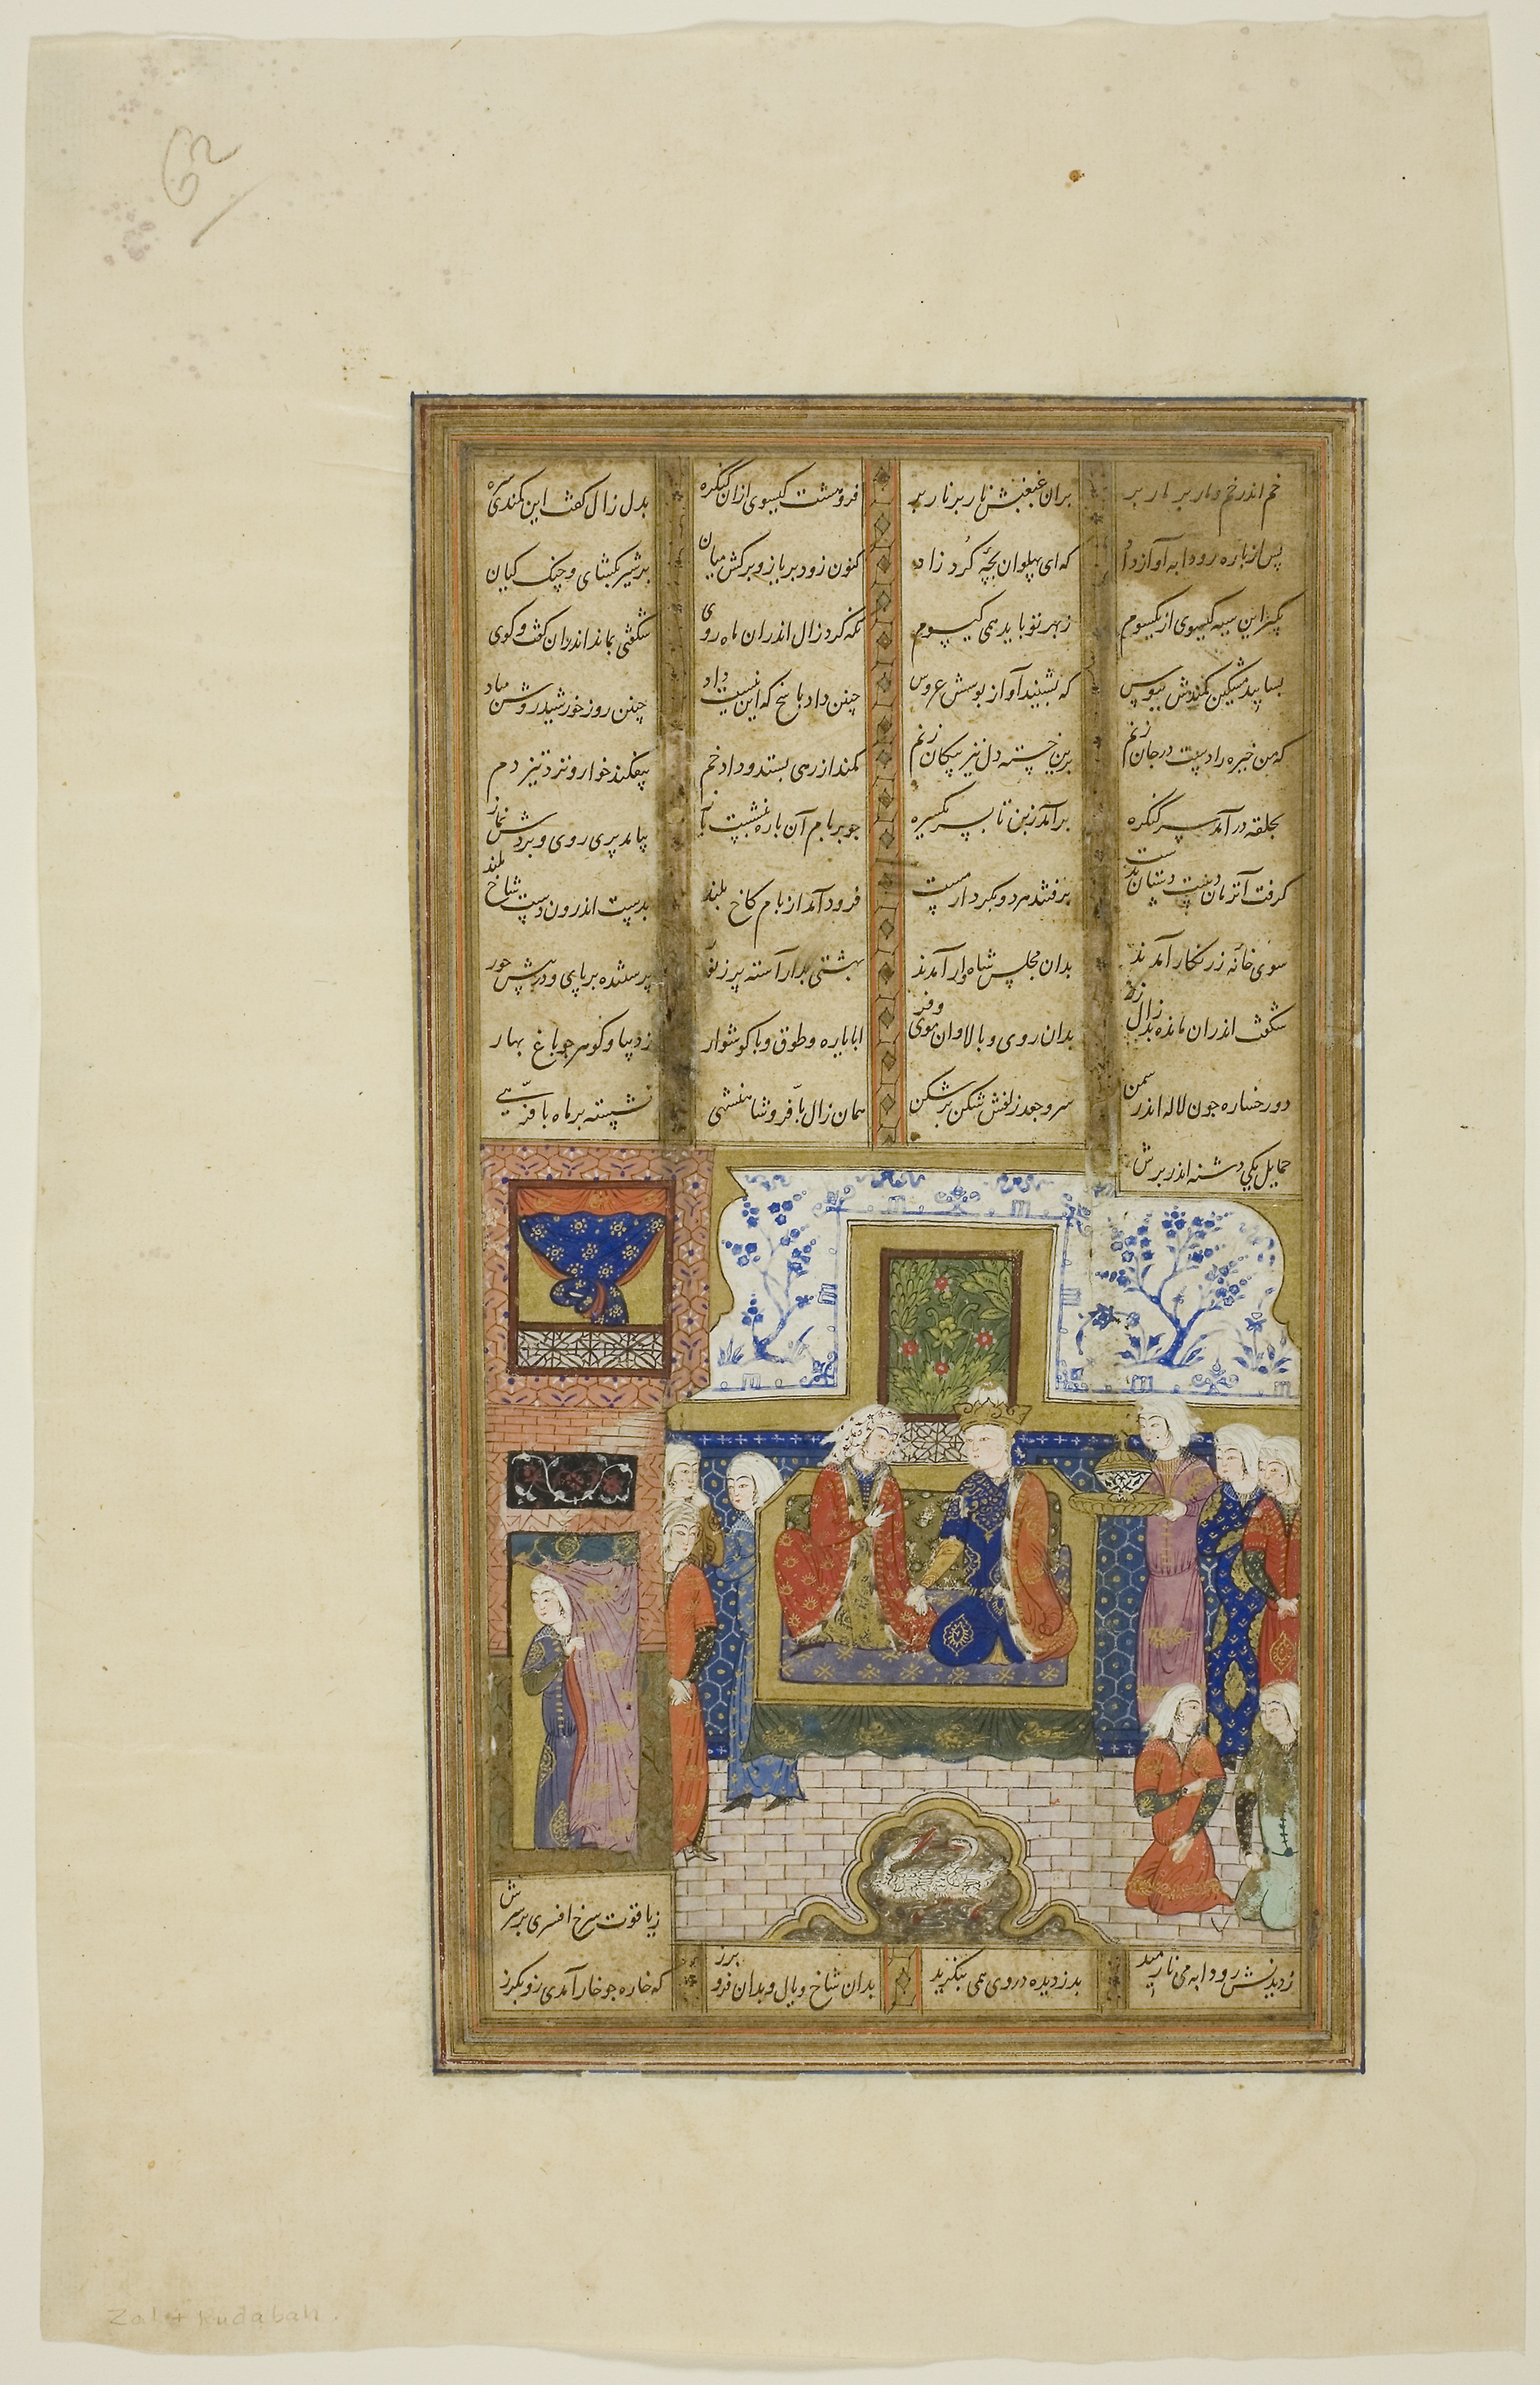 خم اندر خم و مار بر مار بر بران غبغبش نار بر نار بر فروهشت گیسوی ازان کنگره بدل زال گفت این کمندی سره
پس از باره رودابه آواز داد که ای پهلوان بچهٔ گرد زاد کنون زود بریاز و برکش میان بر شیر بگشای و چنگ کیان
بگیر این سیه گیسوی از یکسوم زبهر تو باید همی گیسوم نگه کرد زال اندران ماه روی شگفتی بماند اندران گفت و گوی
بسایید مشکین کمندش ببوس که بشنید آواز بوسش عروس چنین داد پاسخ که این نیست داد چنین روز خورشید روشن مباد
که من خیره را دست در جان زنم برین خسته دل تیز پیکان زنم کمند از رهی بستد و داد خم بیفکند خوار و نزد تیز دم
بحلقه درآمد سر کنگره برآمد زبن تا بسر یکسره چو بر بام آن باره بنشست باز بیامد پری روی و بردش نماز
گرفت آنزمان دست دستان بدست برفتند هر دو بکردار مست فرود آمد از بام کاخ بلند بدست اندرون دست شاخ بلند
سوی خانه زرنگار آمدند بدان مجلس شاهوار آمدند بهشتی بد آراسته پر ز نور پرستنده بر پای و در پیش حور
شگفت اندران مانده بد زال زر بدان روی و بالا و ان موی و فر ابا یاره و طوق و با گوشوار ز دیبا و گوهر چو باغ بهار
دو رخساره چون لاله اندر سمن سر و جعد زلفش شکن بر شکن همان زال با فر و شاهنشهی نشسته بر ماه با فرهی
حمایل یکی دشنه اندر برش
زیاقوت سرخ افسری بر سرش
ز دیدنش رودابه می نارمید بدزدیده در وی همی بنگرید بدان شاخ و یال و بدان فر و برز که خاره چو خار آمدی زو بگرز
62
Zal + Rudabah.